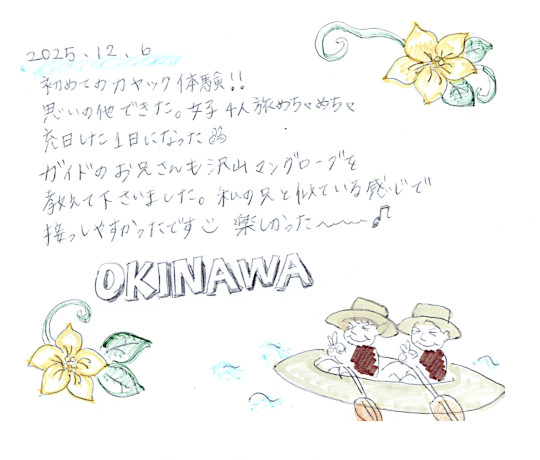 2025.12.6
初めてのカヤック体験!!
思いの他できた。女子4人旅めちゃめちゃ
充日した1日になった
ガイドのお兄さんも沢山マングローブを
教えて下さいました。私の兄と似ている感じで
接っしやすかったです 楽しかった〜〜〜♪
OKINAWA